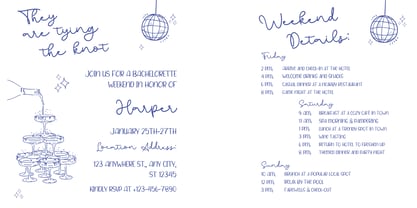 They
are tying
the knot
JOIN US FOR A BACHELORETTE
WEEKEND IN HONOR OF
Harper
JANUARY 25TH-27TH
Location Address:
123 ANYWHERE ST., ANY CITY,
ST 12345
KINDLY RSVP AT +123-456-7890
Weekend
Details:
Friday
2 PM. ARRIVE AND CHECK-IN AT THE HOTEL
4 PM. WELCOME DRINKS AND SNACKS
6 PM. CASUAL DINNER AT A NEARBY RESTAURANT
8 PM. GAME NIGHT AT THE HOTEL
Saturday
9 AM. BREAKFAST AT A COZY CAFE IN TOWN
11 AM. SPA MORNING & PAMPERING
1 PM. LUNCH AT A TRENDY SPOT IN TOWN
3 PM. WINE TASTING
6 PM. RETURN TO HOTEL TO FRESHEN UP
8 PM. THEMED DINNER AND PARTY NIGHT
Sunday
10 AM. BRUNCH AT A POPULAR LOCAL SPOT
12 PM. RELAX BY THE POOL
3 PM. FAREWELLS & CHECK-OUT